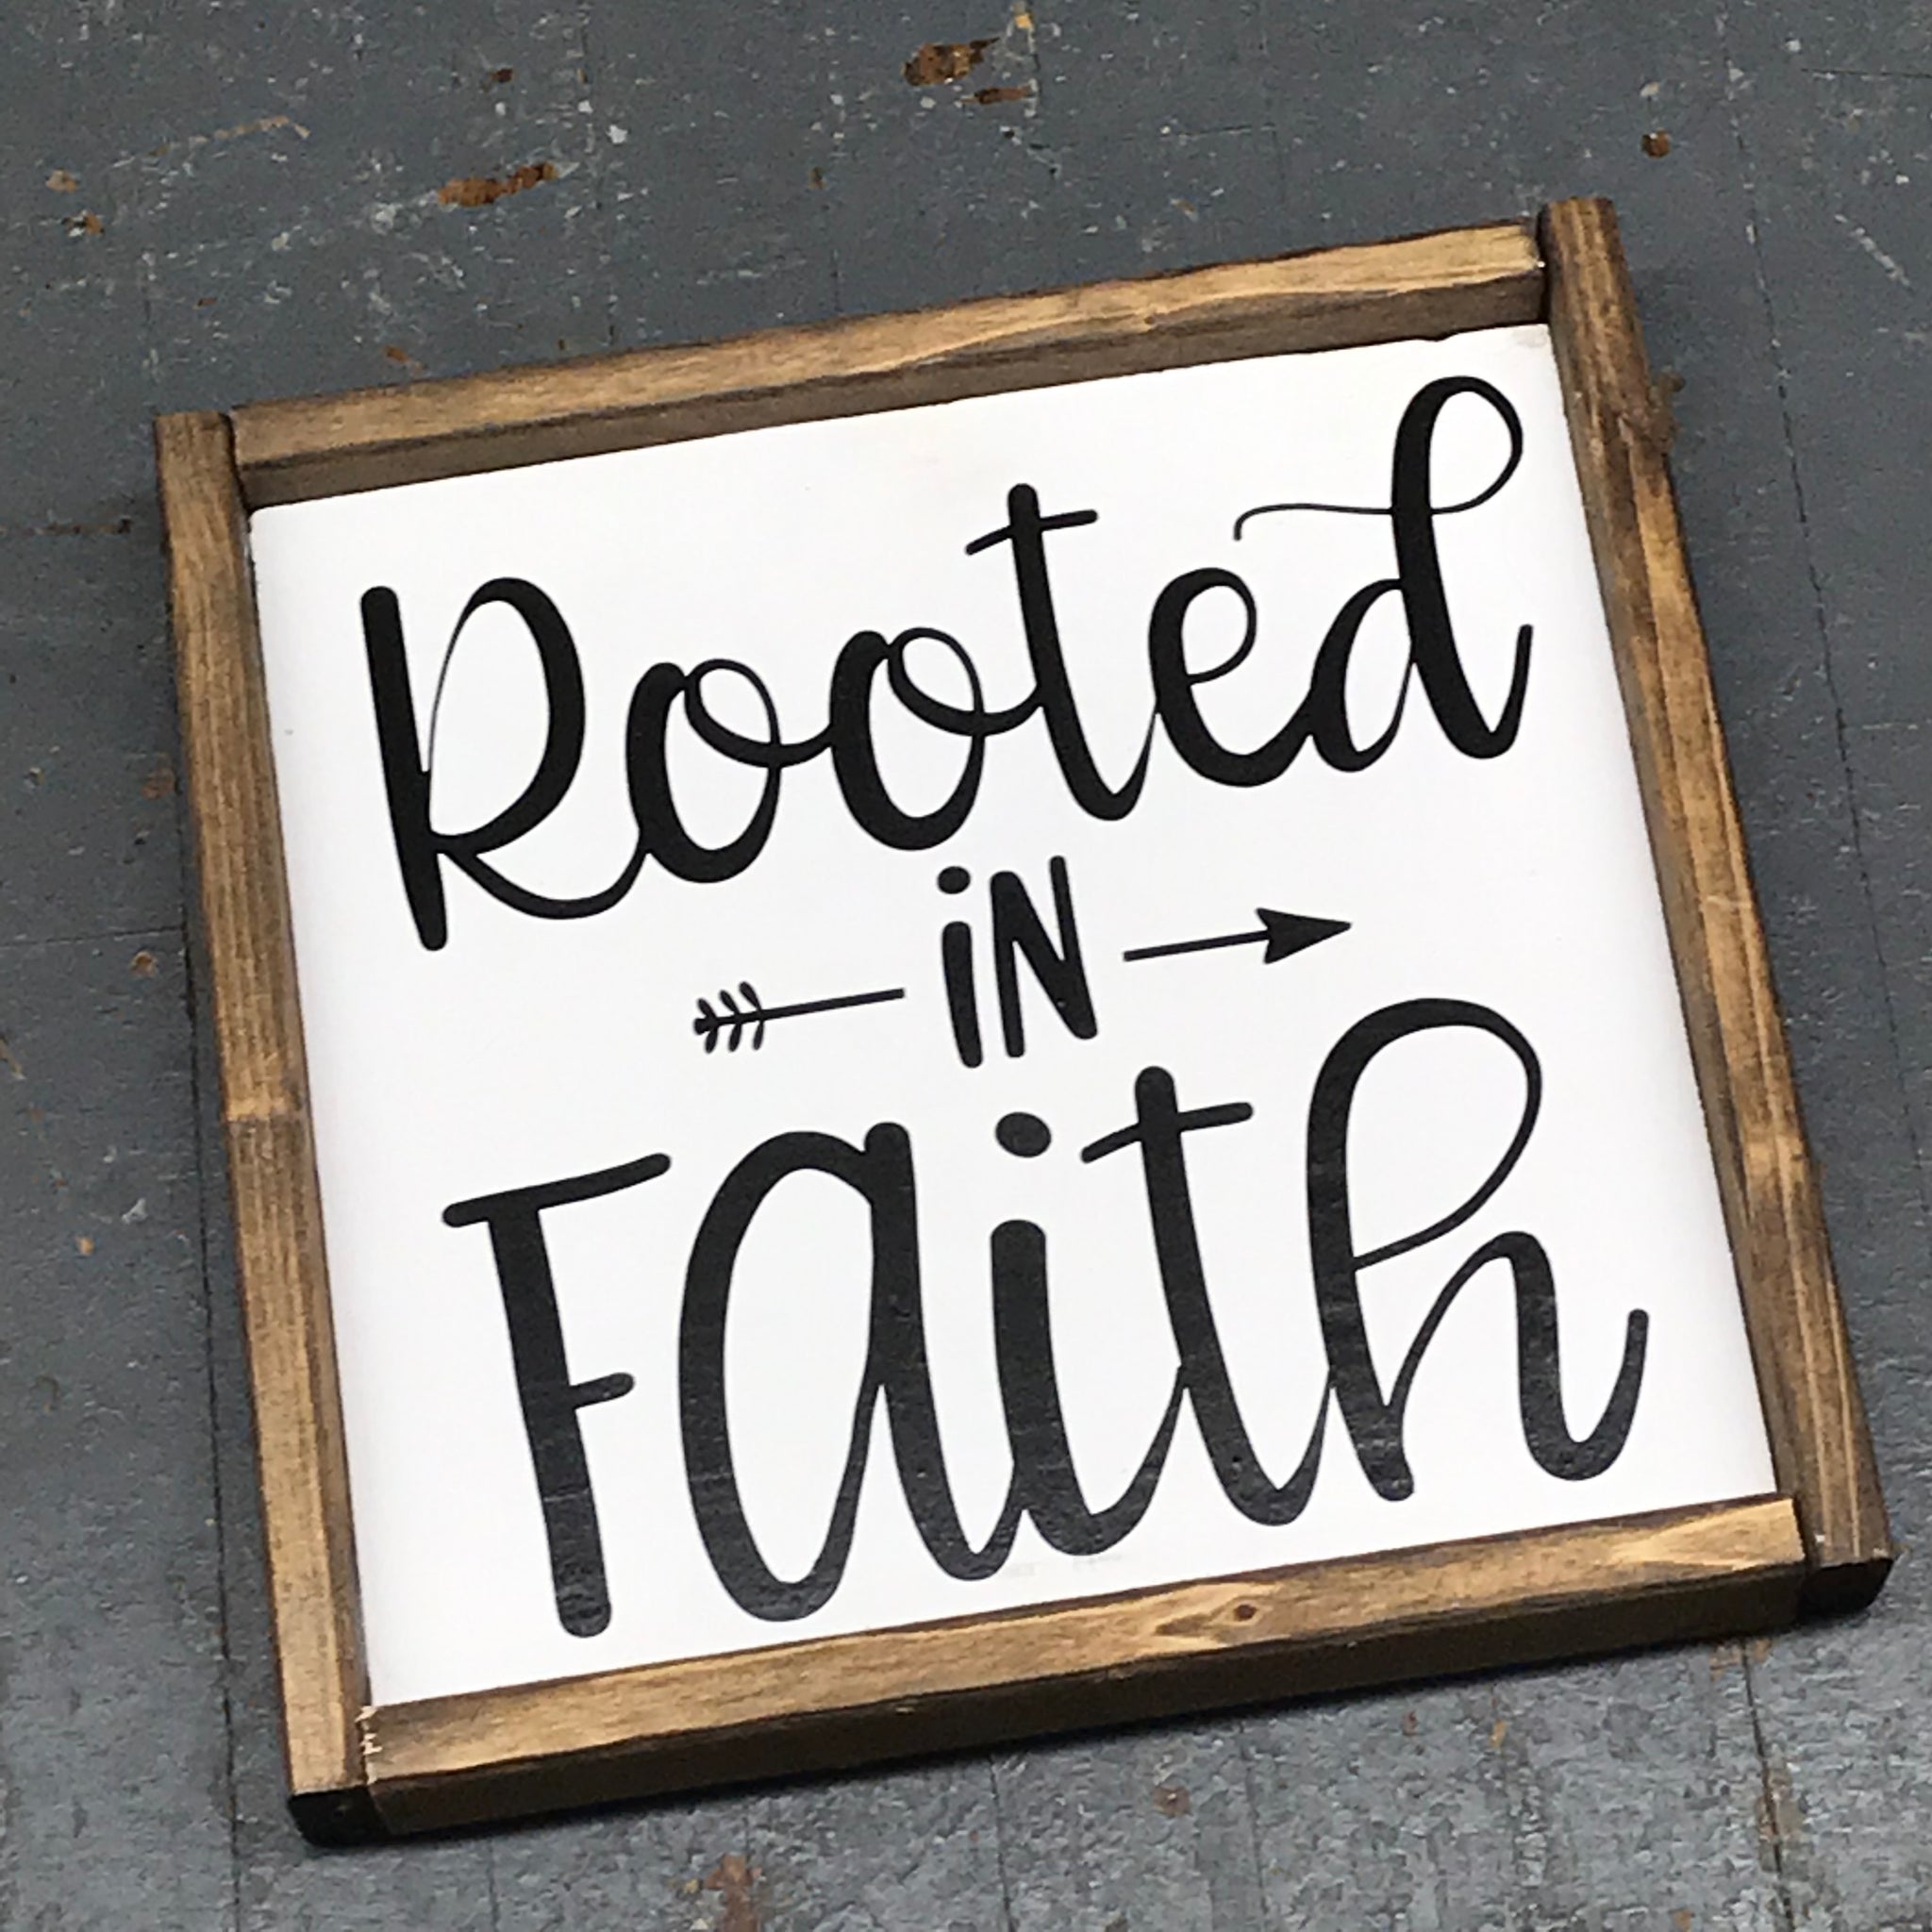 Rooted
iN
Faith